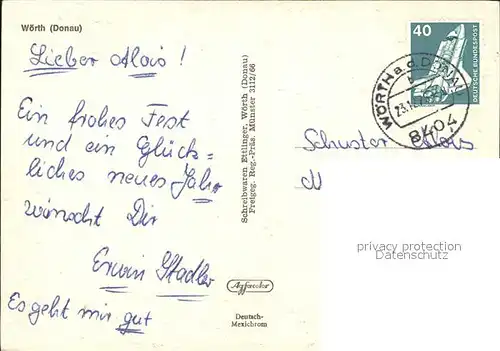 Wörth (Donau)
Lieber Alois!
Ein frohes Fest
und ein Glück=
liches neues Jahr
wünscht Dir
Erwin Stadler
Es geht mir gut
Schreibwaren Ettlinger, Wörth (Donau)
Freigeg. Reg.-Präs. Münster 3112/66
Agfacolor
Deutsch-
Mexichrom
40
DEUTSCHE BUNDESPOST
WÖRTH a. d. DONAU
8404
Schuster Alois
privacy protection
Datenschutz